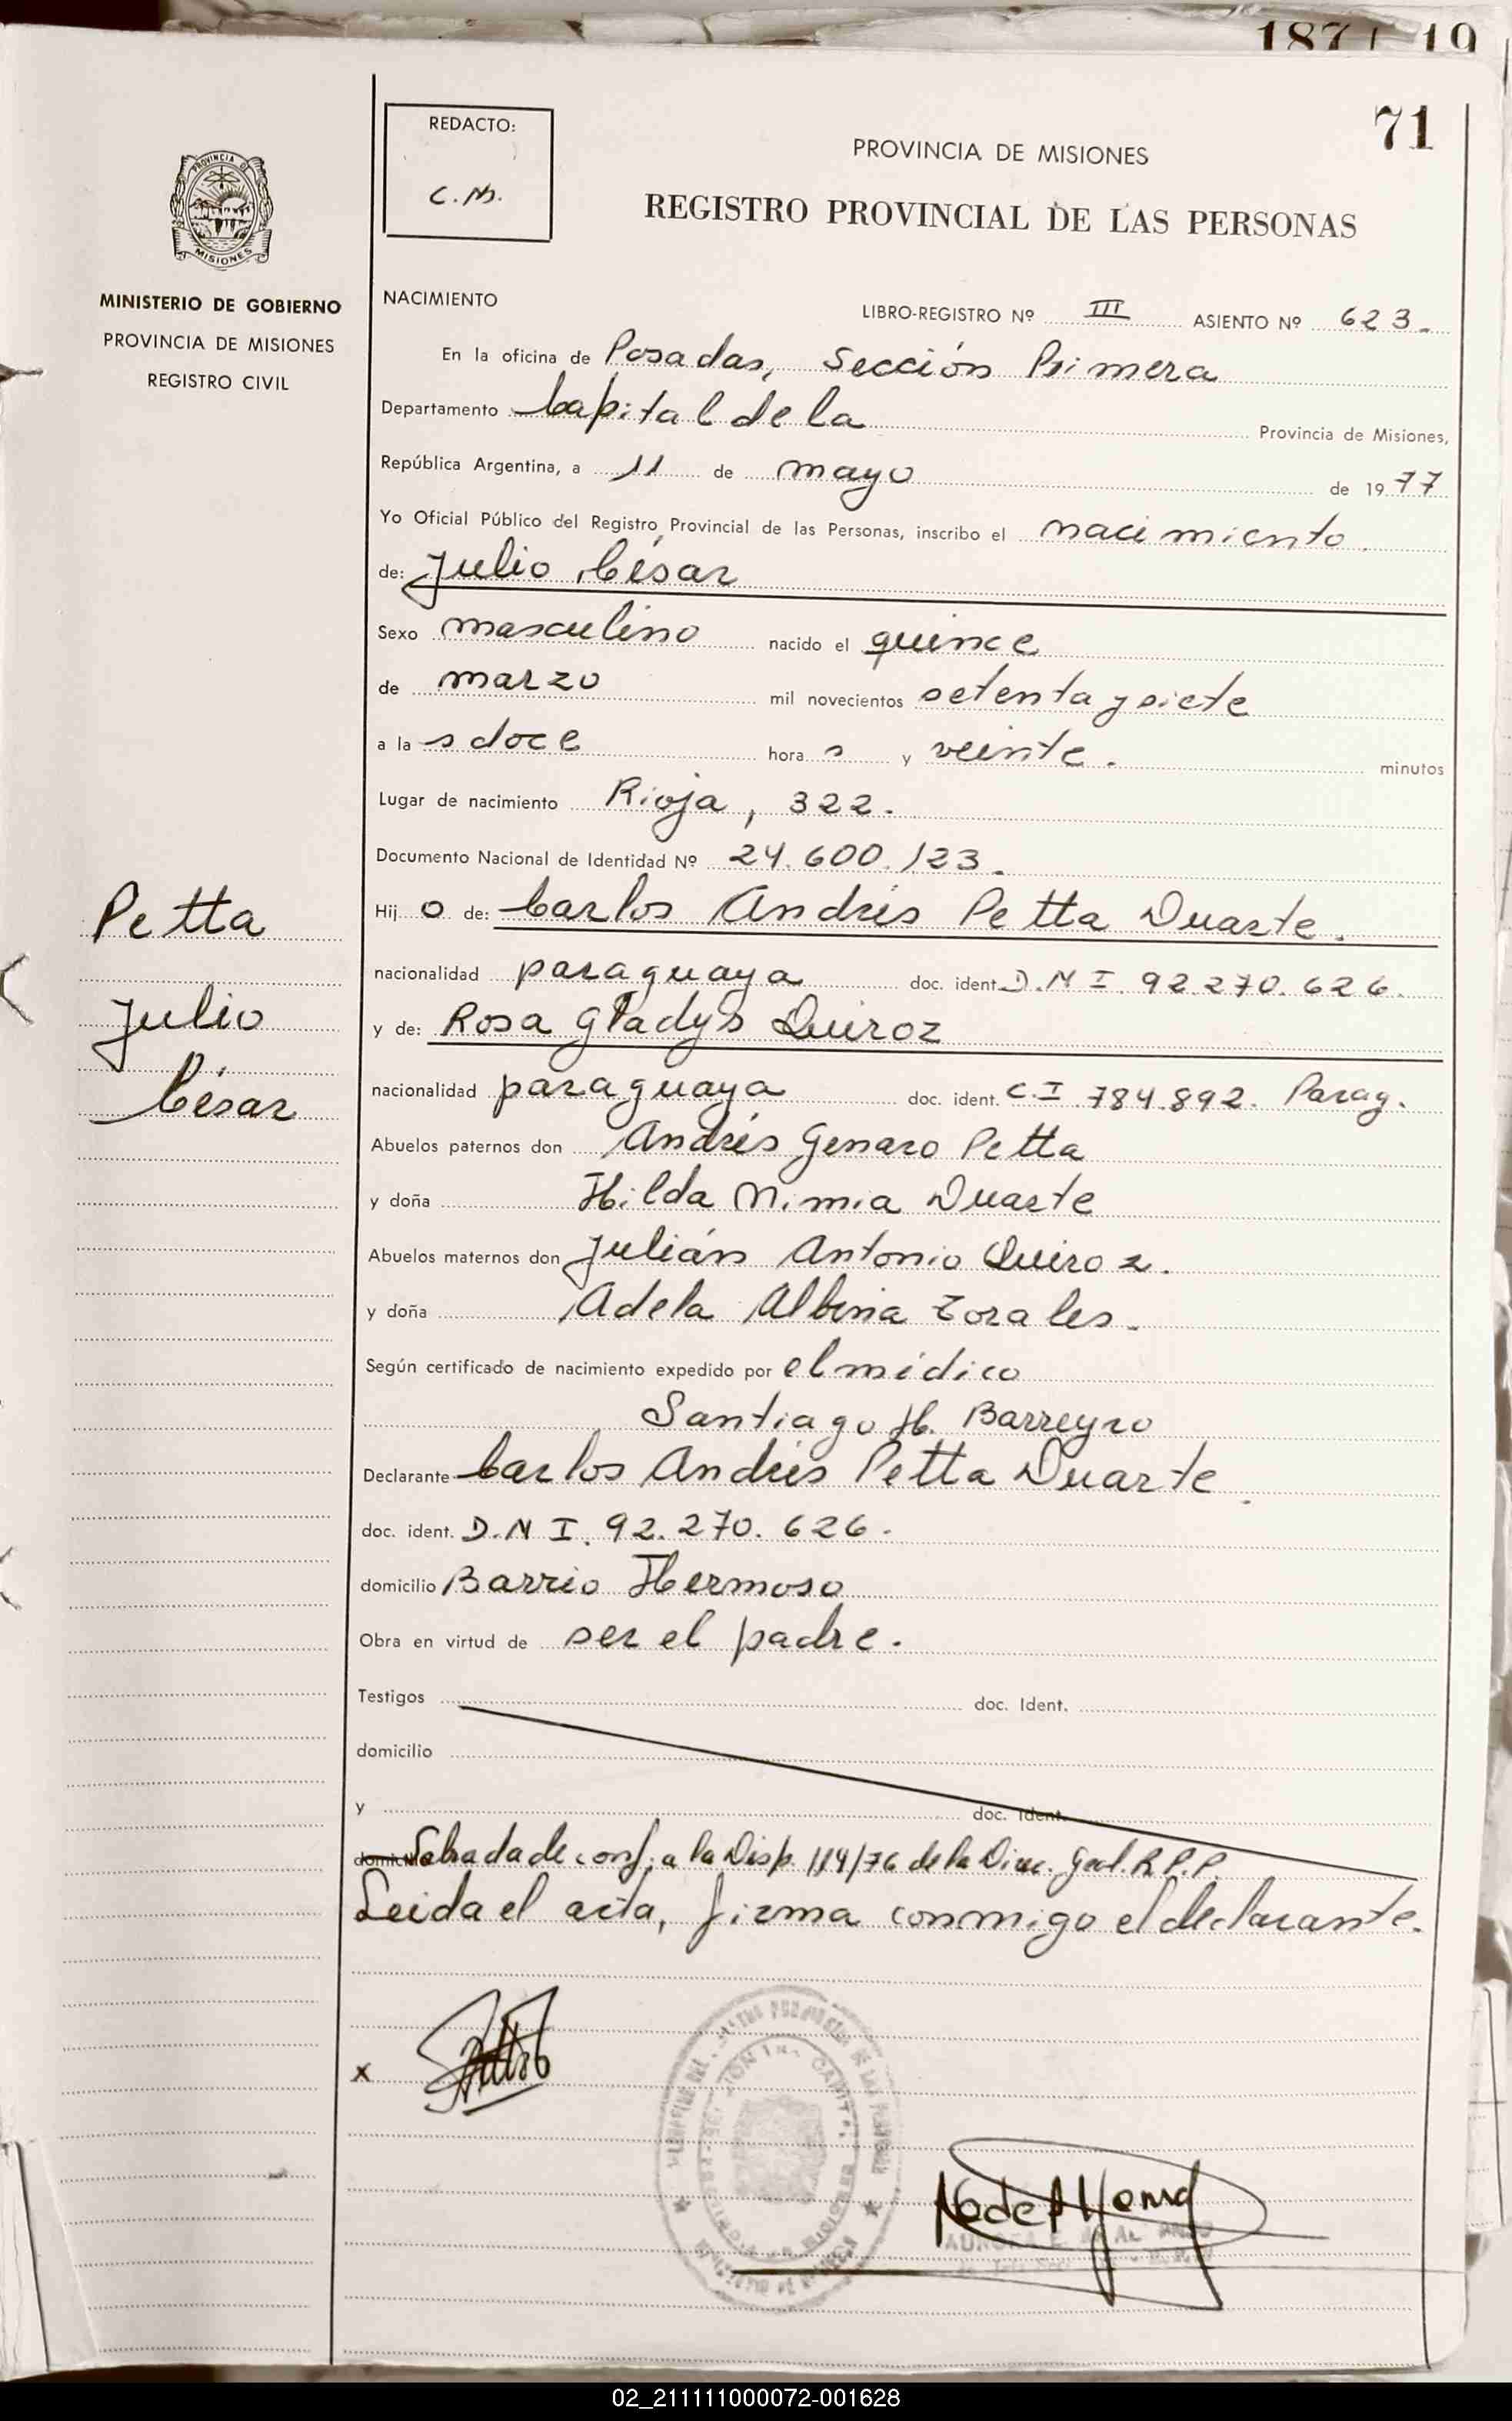 187 19
71
REDACTO:
C.M.
PROVINCIA DE MISIONES
REGISTRO PROVINCIAL DE LAS PERSONAS
PROVINCIA DE
MISIONES
MINISTERIO DE GOBIERNO
PROVINCIA DE MISIONES
REGISTRO CIVIL
NACIMIENTO
LIBRO-REGISTRO Nº III ASIENTO Nº 623.
En la oficina de Posadas, Sección Primera
Departamento Capital de la Provincia de Misiones,
República Argentina, a 11 de mayo de 1977
Yo Oficial Público del Registro Provincial de las Personas, inscribo el nacimiento.
de: Julio César
Sexo masculino nacido el quince
de marzo mil novecientos setenta y siete
a la s doce hora s y veinte. minutos
Lugar de nacimiento Rioja, 322.
Documento Nacional de Identidad Nº 24.600.123.
Hij o de: Carlos Andrés Petta Duarte.
nacionalidad paraguaya doc. ident. D.N I. 92.270.626.
y de: Rosa Gladys Quiroz
nacionalidad paraguaya doc. ident. C.I 784.892. Parag.
Abuelos paternos don Andrés Genaro Petta
y doña Hilda Nimia Duarte
Abuelos maternos don Julián Antonio Quiroz.
y doña Adela Albina Torales.
Según certificado de nacimiento expedido por el médico
Santiago H. Barreyro
Declarante Carlos Andrés Petta Duarte.
doc. ident. D.N I. 92.270.626.
domicilio Barrio Hermoso
Obra en virtud de ser el padre.
Testigos doc. Ident.
domicilio
y doc. Ident.
domicilio Labrada de conf. a la Disp. 114/76 de la Direc. Gral. R.P.P.
Leida el acta, firma conmigo el declarante.
Petta
Julio
César
x
AURORA E.
02_211111000072-001628